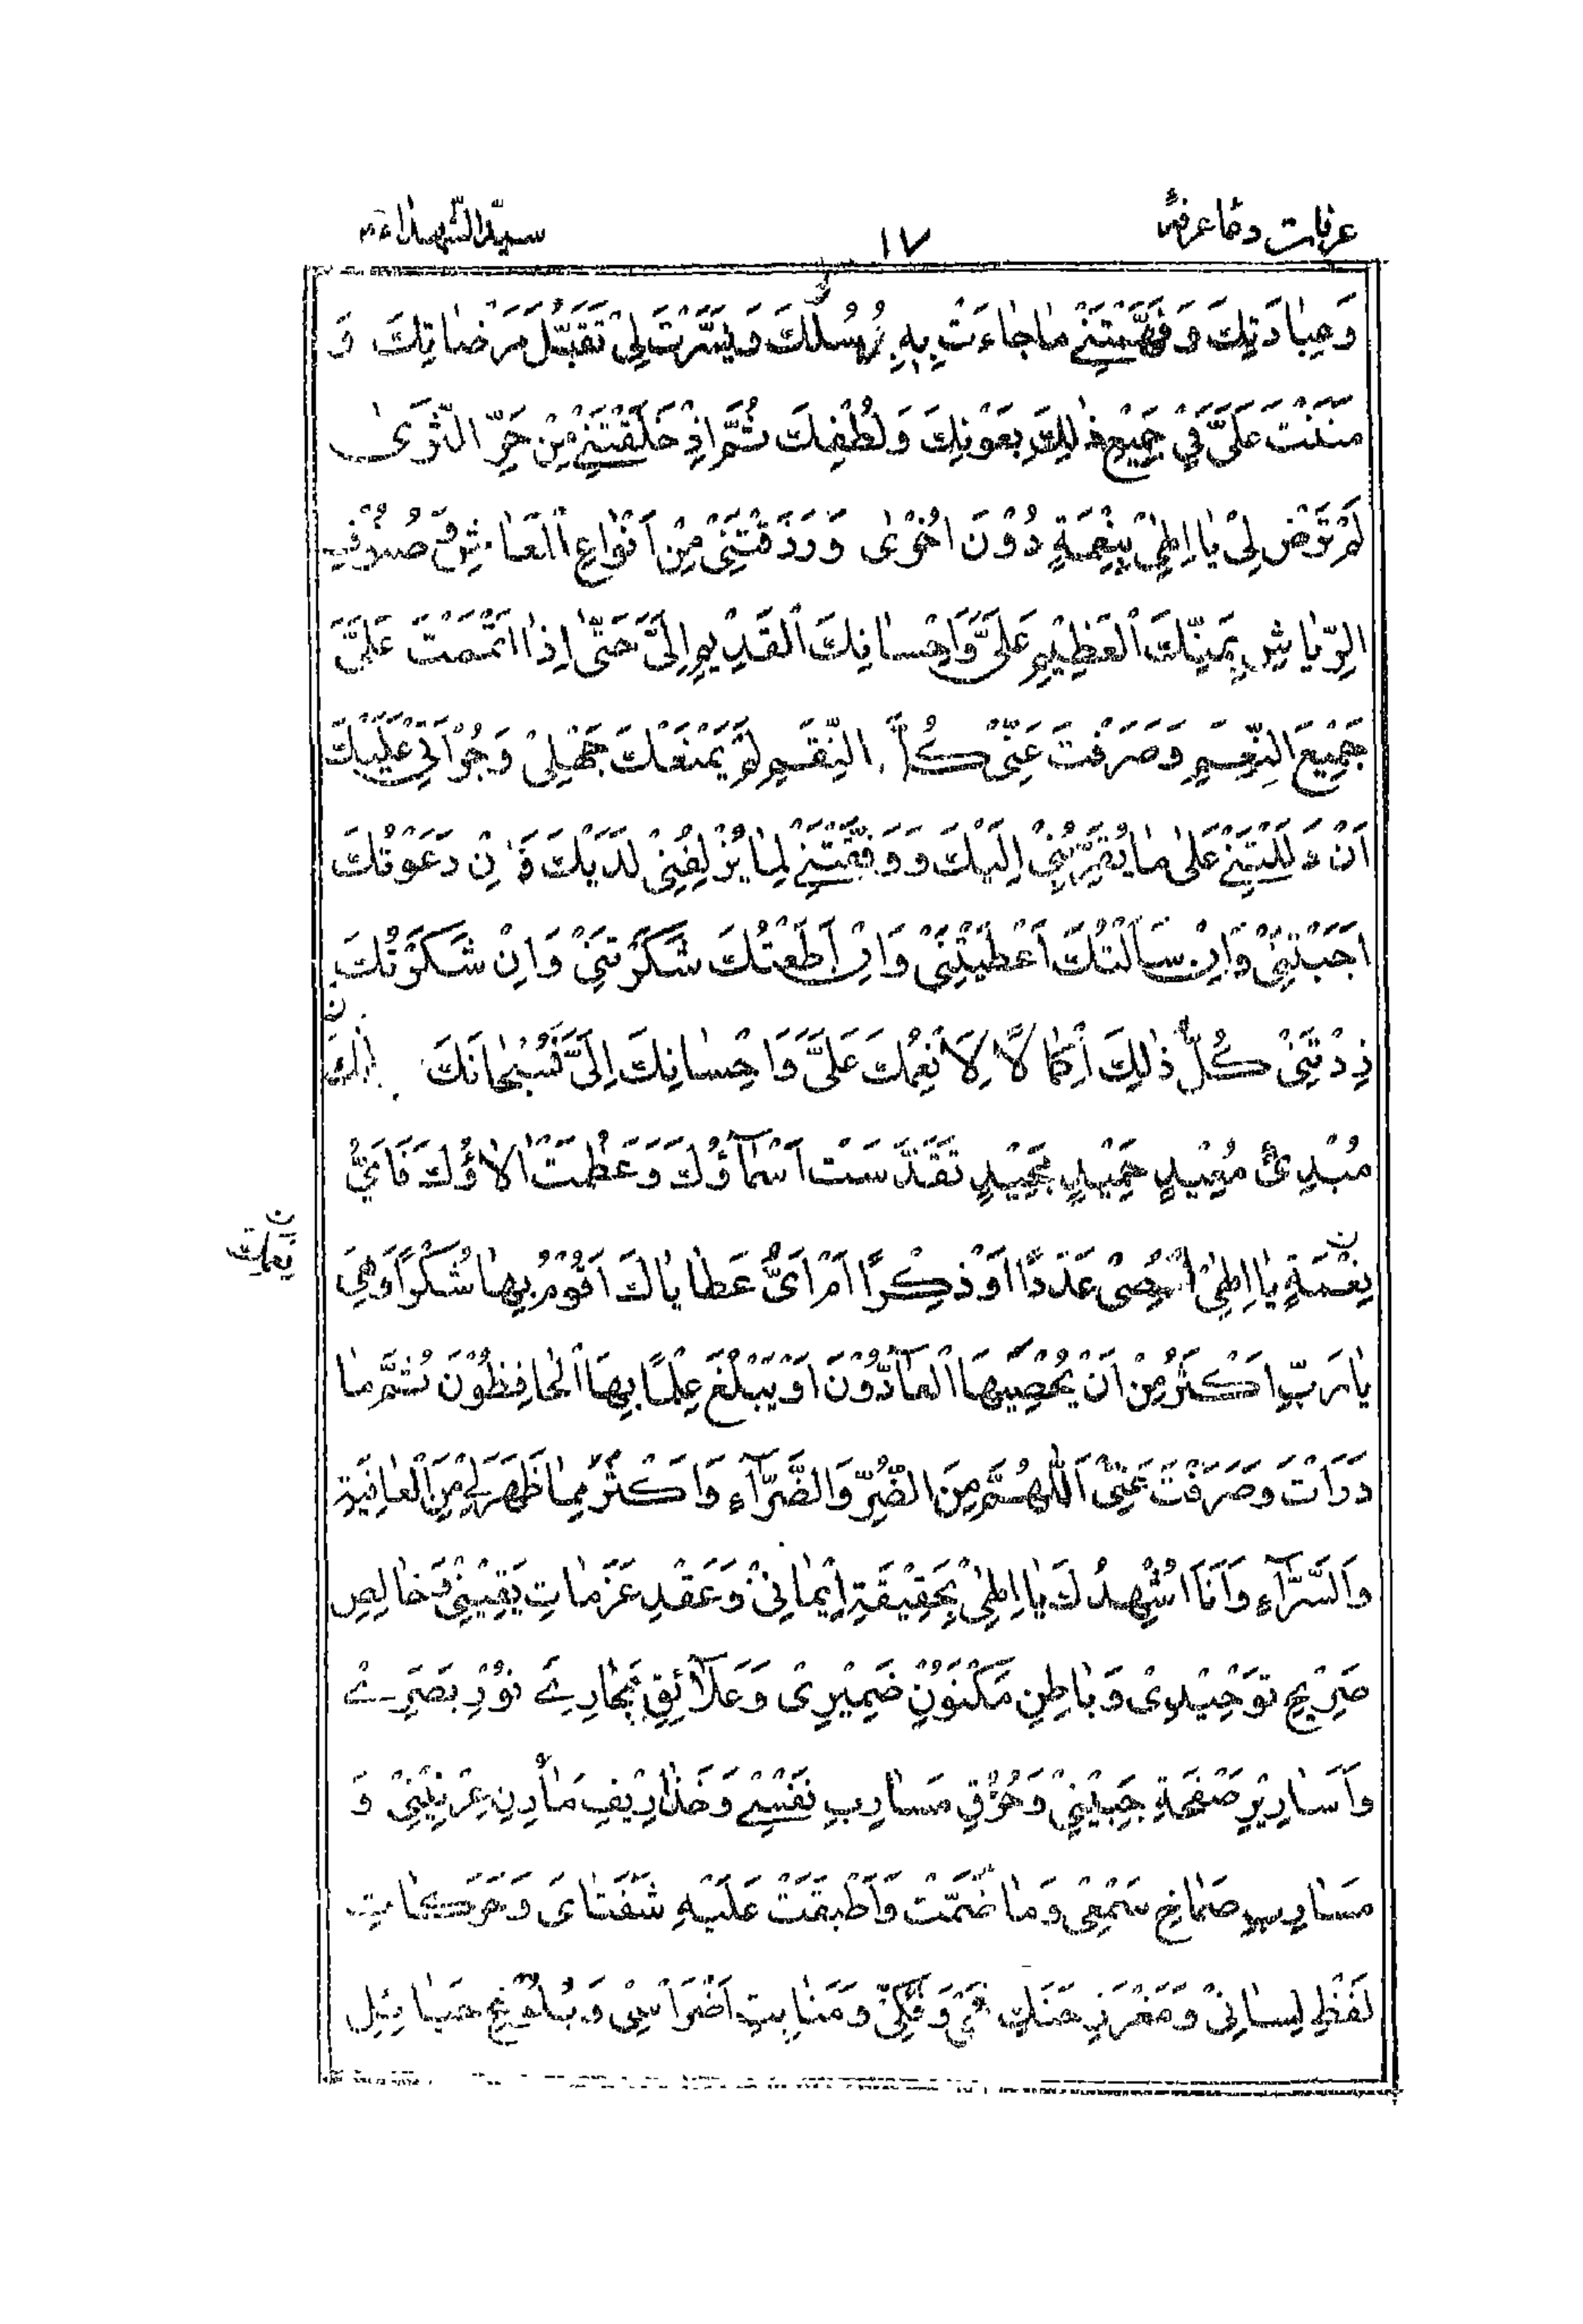 عرفات دعاء عرفه
١٧
سيد الشهداء
وَعِبَادَتِكَ وَفَهَّمْتَنِيْ مَا جَاءَتْ بِهِ رُسُلُكَ وَيَسَّرْتَ لِيْ تَقَبُّلَ مَرْضَاتِكَ وَ
مَنَنْتَ عَلَيَّ فِيْ جَمِيْعِ ذٰلِكَ بِعَوْنِكَ وَلُطْفِكَ ثُمَّ اِذْ خَلَقْتَنِيْ مِنْ حَرِّ الثَّرٰى
لَمْ تَرْضَ لِيْ يَا اِلٰهِيْ بِنِعْمَةٍ دُوْنَ اُخْرٰى وَرَزَقْتَنِيْ مِنْ اَنْوَاعِ الْمَعَاشِ وَصُنُوْفِ
الرِّيَاشِ بِمَنِّكَ الْعَظِيْمِ عَلَيَّ وَاِحْسَانِكَ الْقَدِيْمِ اِلَيَّ حَتّٰى اِذَا اَتْمَمْتَ عَلَيَّ
جَمِيْعَ النِّعَمِ وَصَرَفْتَ عَنِّيْ كُلَّ النِّقَمِ لَمْ يَمْنَعْكَ جَهْلِيْ وَجُرْاَتِيْ عَلَيْكَ
اَنْ دَلَلْتَنِيْ عَلٰى مَا يُقَرِّبُنِيْ اِلَيْكَ وَوَفَّقْتَنِيْ لِمَا يُزْلِفُنِيْ لَدَيْكَ فَاِنْ دَعَوْتُكَ
اَجَبْتَنِيْ وَاِنْ سَاَلْتُكَ اَعْطَيْتَنِيْ وَاِنْ اَطَعْتُكَ شَكَرْتَنِيْ وَاِنْ شَكَرْتُكَ
زِدْتَنِيْ كُلُّ ذٰلِكَ اِكْمَالًا لِاَنْعُمِكَ عَلَيَّ وَاِحْسَانِكَ اِلَيَّ فَسُبْحَانَكَ
مُبْدِئٍ مُعِيْدٍ حَمِيْدٍ مَجِيْدٍ تَقَدَّسَتْ اَسْمَآؤُكَ وَعَظُمَتْ اٰلَاؤُكَ فَاَيُّ
نِعْمَةٍ يَا اِلٰهِيْ اُحْصِيْ عَدَدًا اَوْ ذِكْرًا اَمْ اَيُّ عَطَايَاكَ اَقُوْمُ بِهَا شُكْرًا وَهِيَ
نِعَمِكَ
يَا رَبِّ اَكْثَرُ مِنْ اَنْ يُحْصِيَهَا الْعَآدُّوْنَ اَوْ يَبْلُغَ عِلْمًا بِهَا الْحَافِظُوْنَ ثُمَّ مَا
دَرَاْتَ وَصَرَفْتَ عَنِّيْ اَللّٰهُمَّ مِنَ الضُّرِّ وَالضَّرَّآءِ وَاَكْثَرُ مِمَّا ظَهَرَ لِيْ مِنَ الْعَافِيَةِ
وَالسَّرَّآءِ وَاَنَا اُشْهِدُكَ يَا اِلٰهِيْ بِحَقِيْقَةِ اِيْمَانِيْ وَعَقْدِ عَزَمَاتِ يَقِيْنِيْ وَخَالِصِ
صَرِيْحِ تَوْحِيْدِيْ وَبَاطِنِ مَكْنُوْنِ ضَمِيْرِيْ وَعَلَآئِقِ مَجَارِيْ نُوْرِ بَصَرِيْ
وَاَسَارِيْرِ صَفْحَةِ جَبِيْنِيْ وَخُرْقِ مَسَارِبِ نَفْسِيْ وَخَذَارِيْفِ مَارِنِ عِرْنِيْنِيْ وَ
مَسَارِبِ صِمَاخِ سَمْعِيْ وَمَا ضُمَّتْ وَاَطْبَقَتْ عَلَيْهِ شَفَتَايَ وَحَرَكَاتِ
لَفْظِ لِسَانِيْ وَمَغْرَزِ حَنَكِ فَمِيْ وَفَكِّيْ وَمَنَابِتِ اَضْرَاسِيْ وَبُلُوْغِ حَبَائِلِ